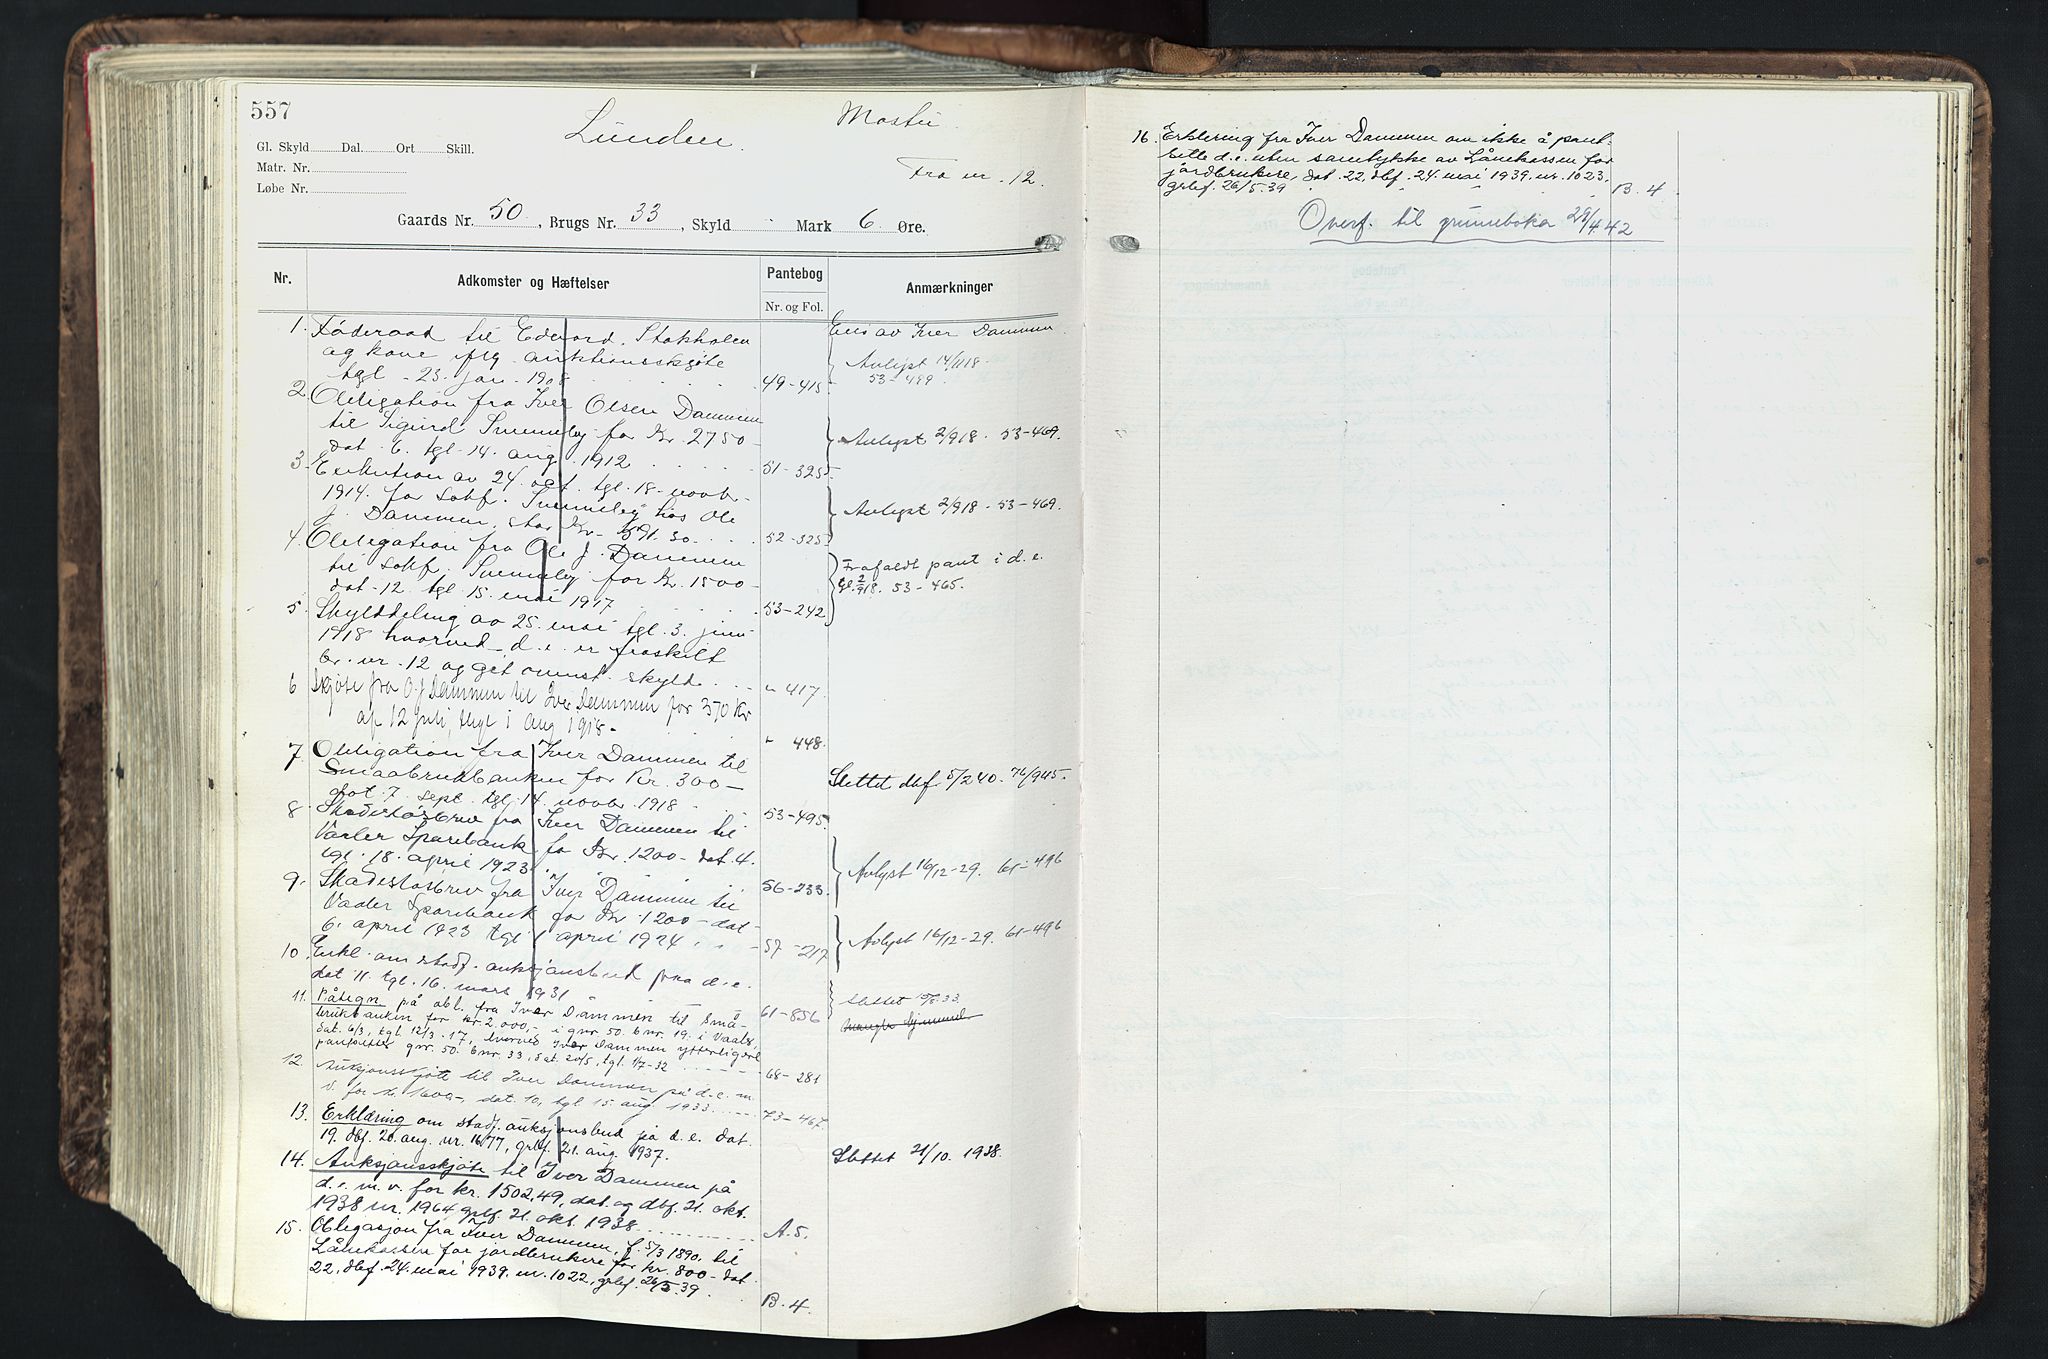 557
Lunden.
Moster.
Gl. Skyld Dal. Ort Skill.
Matr. Nr.
Løbe Nr.
Fra nr. 12.
Gaards Nr. 50, Brugs Nr. 33, Skyld Mark 6 Øre.
Nr. Adkomster og Hæftelser Pantebog Anmærkninger
Nr. og Fol.
1. Føderaad til Edvard Stokholen Eies av Iver Dammen.
og kone iflg. auktionsskjøte Avlyst 14/11 18.
tgl. 23. jan. 1908 49-415 53-499
2. Obligation fra Iver Olsen Dammen
til Sigurd Svenneby for Kr. 2750- Avlyst 2/9 18. 53-469.
dat. 6. tgl. 14. aug. 1912 51-325
3. Exekution av 24. okt. tgl. 18. novbr.
1914 for Sokf. Svenneby hos Ole Avlyst 2/9 18. 53-469.
J. Dammen, stor Kr. 591.30 52-525
4. Obligation fra Ole J. Dammen Frafaldt pant i d. e.
til Sokf. Svenneby for Kr. 1500- tgl. 2/9 18. 53-465.
dat. 12. tgl. 15. mai 1917 53-242
5. Skylddeling av 25. mai tgl. 3. juni
1918 hvorved d. e. er fraskilt
br. nr. 12 og git ovenst. skyld. " 417.
6 Skjøte fra O. J. Dammen til Iver Dammen for 370 Kr
af 12 juli, thgl 1 Aug 1918. " 448.
7. Obligation fra Iver Dammen til
Smaabrukbanken for Kr. 300- Slettet dbf. 5/2 40. 76/945.
dat. 7. sept. tgl. 14. novbr. 1918 53-495.
8. Skadesløsbrev fra Iver Dammen til
Vaaler Sparebank for Kr. 1200- dat. 4. Avlyst 16/12-29. 61-496
tgl. 18. april 1923. 56-233
9. Skadesløsbrev fra Iver Dammen til
Vaaler Sparebank for Kr. 1200- dat. Avlyst 16/12-29. 61-496
6. april 1923 tgl. 1 april 1924. 57-217
10. Erkl. om stadf. auksjonsbud paa d. e.
dat. 11. tgl. 16. mars 1931 61-856 Slettet
11. Påtegn. på obl. fra Iver Dammen til Små-
brukbanken for kr. 2.000,- i gnr. 50. bnr. 19. i Vaaler,
dat. 6/3, tgl. 12/3-17, hvorved Iver Dammen ytterligere
pansetter gnr. 50. bnr. 33, dat. 20/5, tgl. 1/7-32 68-281
12. Auksjonsskjøte til Iver Dammen på d. e. m.
v. for kr. 1600,-, dat. 10, tgl. 15. aug. 1933. 73-467.
13. Erklæring om stadf. auksjonsbud på d. e. dat.
19. dbf. 20. aug. nr. 1677, grbf. 21. aug. 1937. Slettet 21/10. 1938.
14. Auksjonsskjøte til Iver Dammen på
d. e. m. v. for kr. 1502,49, dat. og dbf. 21. okt.
1938 nr. 1964 grbf. 21. okt. 1938 A. 5.
15. Obligasjon fra Iver Dammen, f. 5/3 1890, til
Lånekassen for jordbrukere for kr. 800- dat.
22, dbf. 24. mai 1939, nr. 1022, grbf. 26/5. 39. B. 4.
16. Erklering fra Iver Dammen om ikke å pant-
sette d. e. uten samtykke av Lånekassen for
jordbrukere, dat. 22, dbf. 24. mai 1939, nr. 1023,
grbf. 26/5. 39 B. 4.
Overf. til grunnboka 28/4. 42